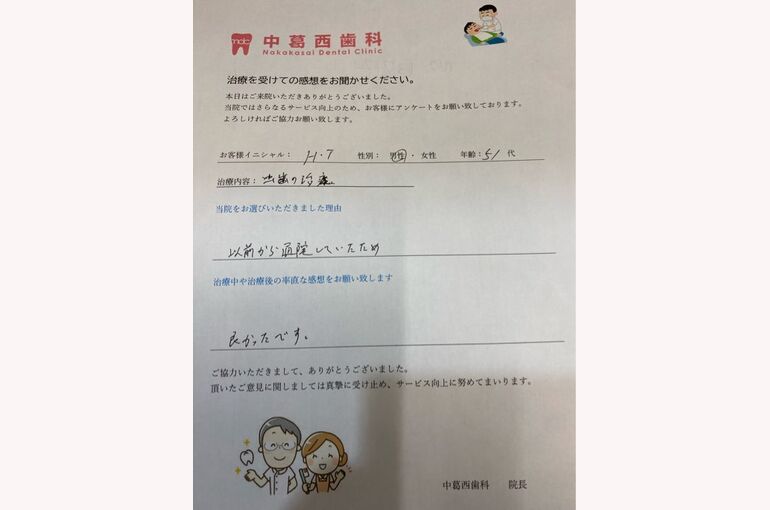 中葛西歯科
Nakakasai Dental Clinic
治療を受けての感想をお聞かせください。
本日はご来院いただきありがとうございました。
当院ではさらなるサービス向上のため、お客様にアンケートをお願い致しております。
よろしければご協力お願い致します。
お客様イニシャル： H・T 性別： 男性・ 女性 年齢：51 代
治療内容： 出歯の治療
当院をお選びいただきました理由
以前から通院していたため
治療中や治療後の率直な感想をお願い致します
良かったです。
ご協力いただきまして、ありがとうございました。
頂いたご意見に関しましては真摯に受け止め、サービス向上に努めてまいります。
中葛西歯科 院長